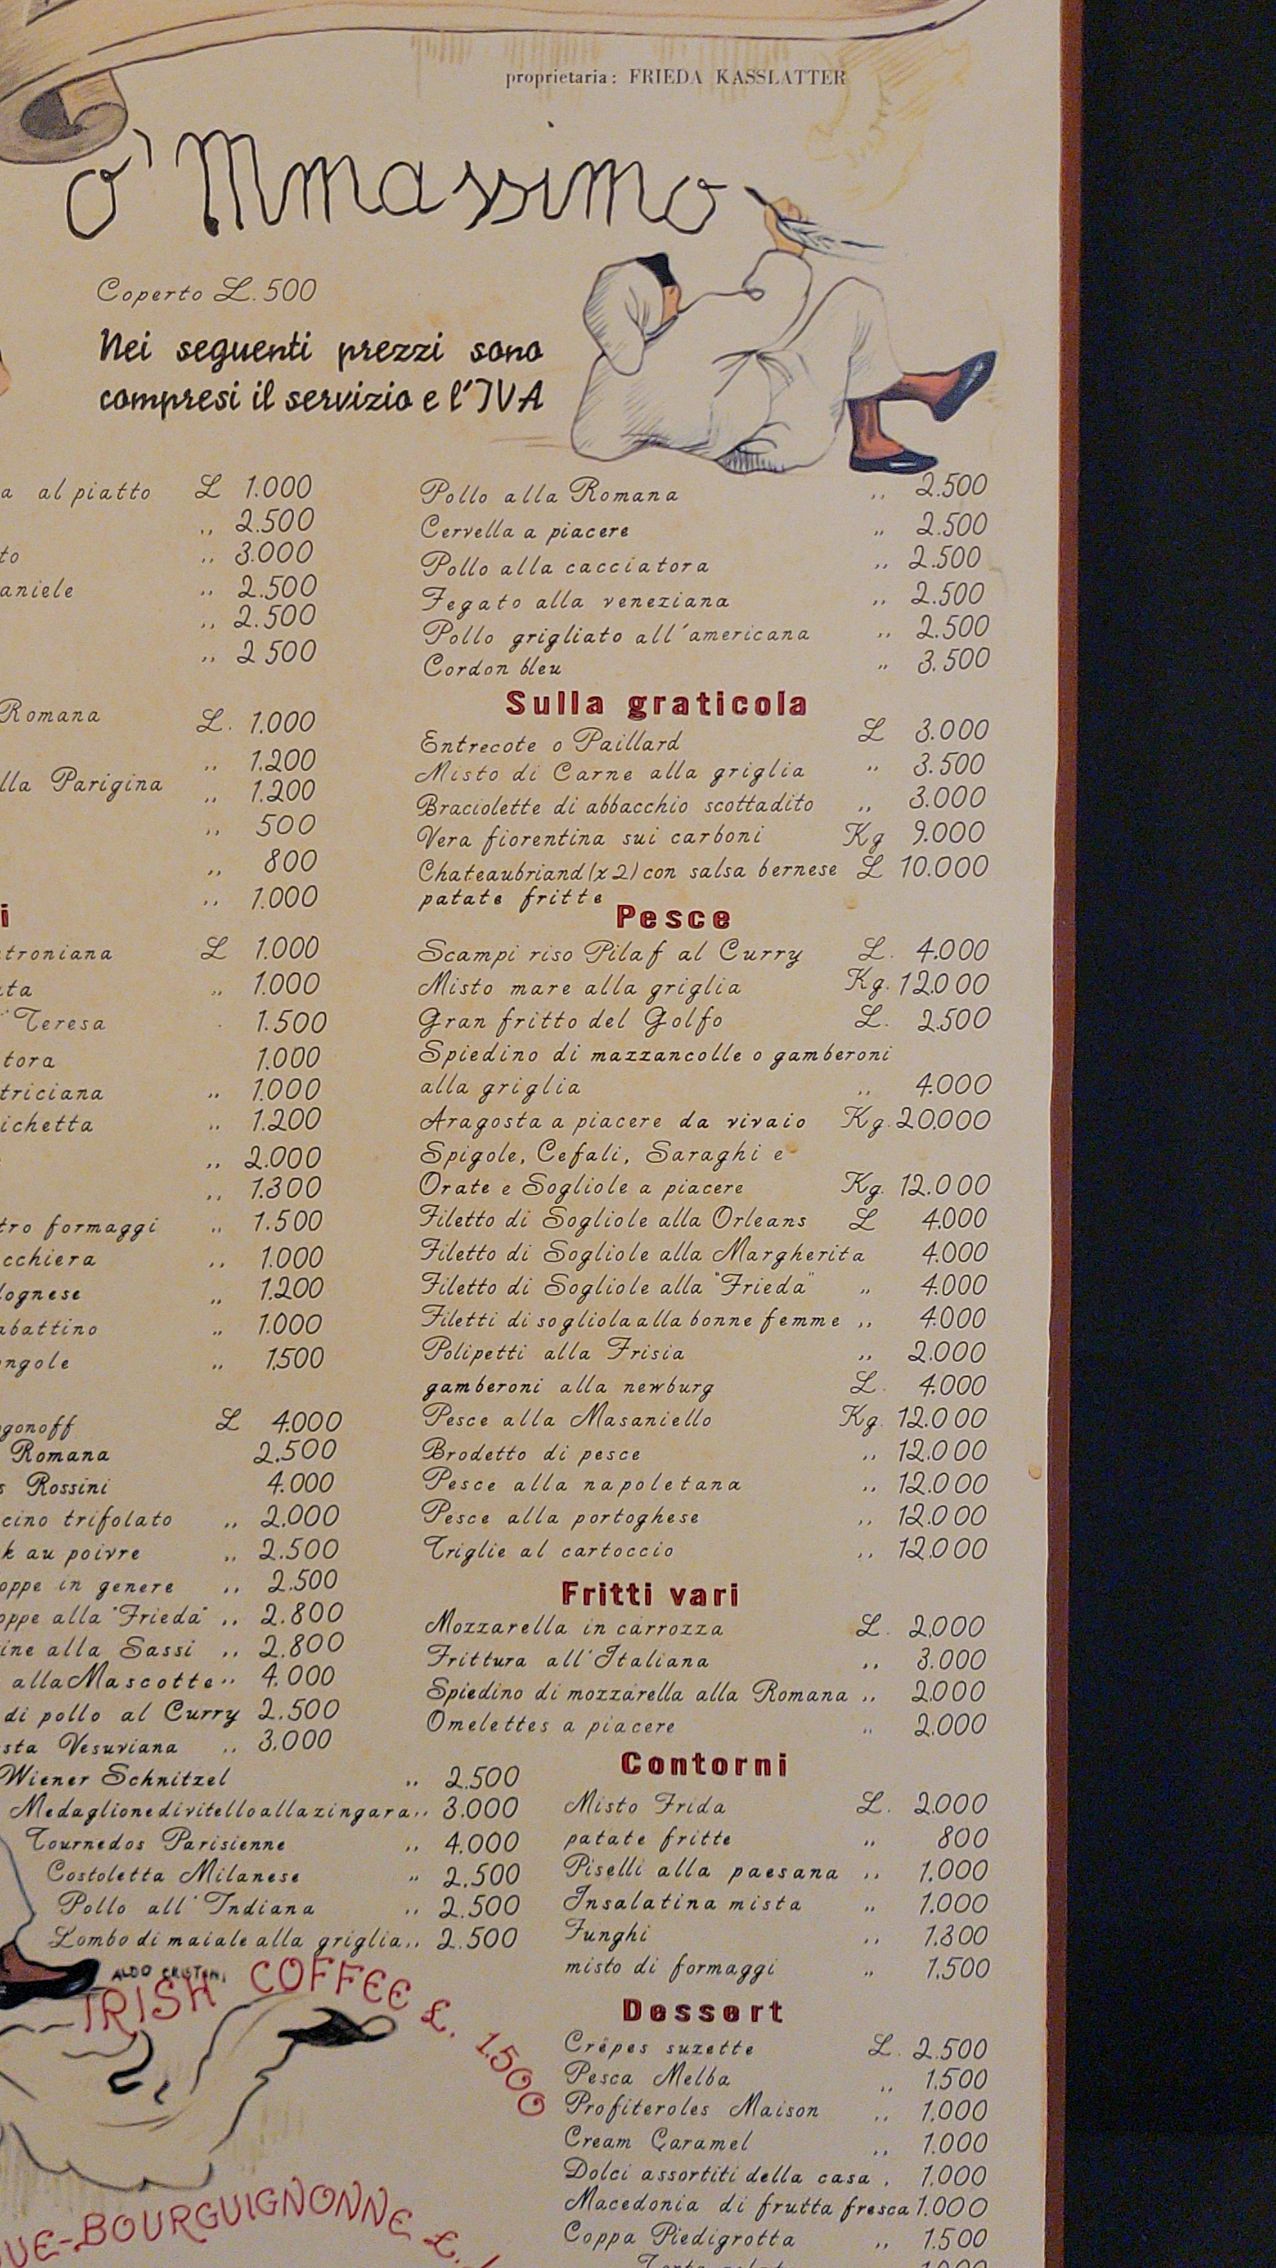 proprietaria: FRIEDA KASSLATTER
O' Mmassimo
Coperto L. 500
Nei seguenti prezzi sono
compresi il servizio e l'IVA
a al piatto L 1.000
,, 2.500
to ,, 3.000
aniele ,, 2.500
,, 2.500
,, 2 500
Romana L. 1.000
,, 1.200
lla Parigina ,, 1.200
,, 500
,, 800
,, 1.000
i
troniana L 1.000
ata ,, 1.000
Teresa 1.500
tora 1.000
triciana ,, 1.000
ichetta ,, 1.200
,, 2.000
,, 1.300
tro formaggi ,, 1.500
cchiera ,, 1.000
lognese ,, 1.200
abattino ,, 1.000
ongole ,, 1.500
gonoff L 4.000
Romana 2.500
s Rossini 4.000
cino trifolato ,, 2.000
k au poivre ,, 2.500
oppe in genere ,, 2.500
oppe alla "Frieda" ,, 2.800
ine alla Sassi ,, 2.800
alla Mascotte ,, 4.000
di pollo al Curry 2.500
sta Vesuviana ,, 3.000
Wiener Schnitzel ,, 2.500
Medaglione di vitello alla zingara ,, 3.000
Tournedos Parisienne ,, 4.000
Costoletta Milanese ,, 2.500
Pollo all'Indiana ,, 2.500
Lombo di maiale alla griglia ,, 2.500
Pollo alla Romana ,, 2.500
Cervella a piacere ,, 2.500
Pollo alla cacciatora ,, 2.500
Fegato alla veneziana ,, 2.500
Pollo grigliato all'americana ,, 2.500
Cordon bleu ,, 3.500
Sulla graticola
Entrecote o Paillard L 3.000
Misto di Carne alla griglia ,, 3.500
Braciolette di abbacchio scottadito ,, 3.000
Vera fiorentina sui carboni Kg 9.000
Chateaubriand (x 2) con salsa bernese L 10.000
patate fritte
Pesce
Scampi riso Pilaf al Curry L. 4.000
Misto mare alla griglia Kg. 12.000
Gran fritto del Golfo L. 2.500
Spiedino di mazzancolle o gamberoni
alla griglia ,, 4.000
Aragosta a piacere da vivaio Kg. 20.000
Spigole, Cefali, Saraghi e
Orate e Sogliole a piacere Kg. 12.000
Filetto di Sogliole alla Orleans L 4.000
Filetto di Sogliole alla Margherita 4.000
Filetto di Sogliole alla "Frieda" ,, 4.000
Filetti di sogliola alla bonne femme ,, 4.000
Polipetti alla Frisia ,, 2.000
gamberoni alla newburg L. 4.000
Pesce alla Masaniello Kg. 12.000
Brodetto di pesce ,, 12.000
Pesce alla napoletana ,, 12.000
Pesce alla portoghese ,, 12.000
Triglie al cartoccio ,, 12.000
Fritti vari
Mozzarella in carrozza L. 2.000
Frittura all'Italiana ,, 3.000
Spiedino di mozzarella alla Romana ,, 2.000
Omelettes a piacere ,, 2.000
Contorni
Misto Frida L. 2.000
patate fritte ,, 800
Piselli alla paesana ,, 1.000
Insalatina mista ,, 1.000
Funghi ,, 1.300
misto di formaggi ,, 1.500
Dessert
Crêpes suzette L. 2.500
Pesca Melba ,, 1.500
Profiteroles Maison ,, 1.000
Cream Caramel ,, 1.000
Dolci assortiti della casa . 1.000
Macedonia di frutta fresca 1.000
Coppa Piedigrotta ,, 1.500
ALDO
IRISH COFFEE £. 1.500
UE-BOURGUIGNONNE £.